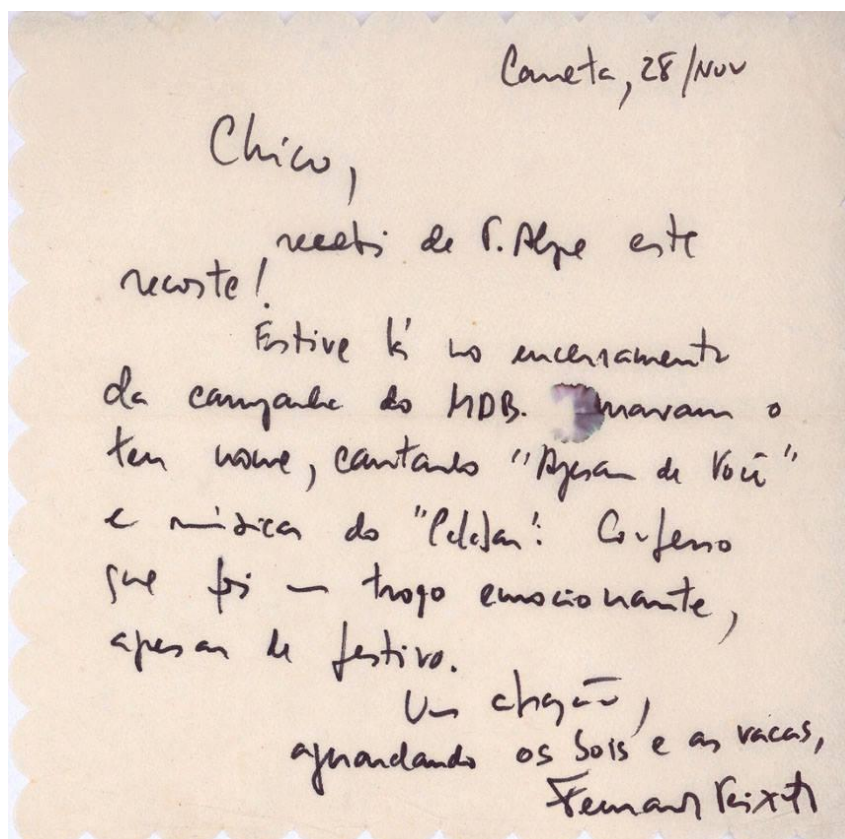 Caneta, 28/Nov
Chico,
recebi de P. Alegre este
recorte!
Estive lá no encerramento
da campanha do MDB. mavam o
teu nome, cantando "Apesar de Você"
e músicas do "Calabar". Confesso
que foi um troço emocionante,
apesar de festivo.
Um abração,
aguardando os bois e as vacas,
Fernando Peixoto